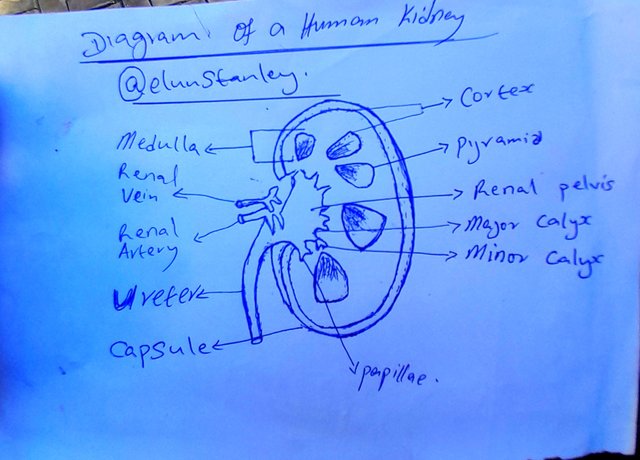 Diagram of a Human Kidney
@elunStanley.
Cortex
Medulla
Pyramid
Renal
Vein
Renal pelvis
Renal
Artery
Major Calyx
Minor Calyx
Ureter
Capsule
papillae.